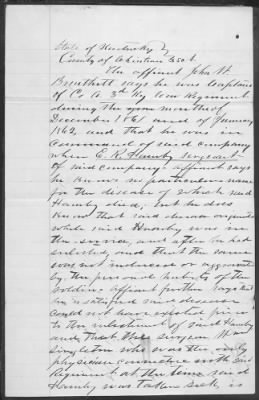 State of Kentucky }
County of Christian } Sct.
The affiant John W.
Breathitt says he was Captain
of Co A 3rd Ky Cav Regiment
during the months of
December 1861 and of January
1862, and that he was in
command of said company
when E. R. Hamby Sergeant
of said company affiant says
he knows no particular name
for the disease of which said
Hamby died, but he does
know that said disease originated
while said Hamby was in
the service, and after he had
enlisted, and that the same
was not induced or aggravated
by the personal habits of the
soldier affiant further says that
he is satisfied said disease
could not have existed prior
to the enlistment of said Hamby
and that the surgeon Wm
Singleton who was the only
physician connected with the said
Regiment at the time said
Hamby was taken sick, is